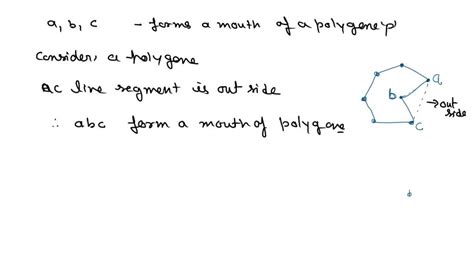 a, b, c - forms a mouth of a polygone p
Consider, a polygone
ac line segment is out side
∴ abc form a mouth of polygone
a
b
→ out side
c